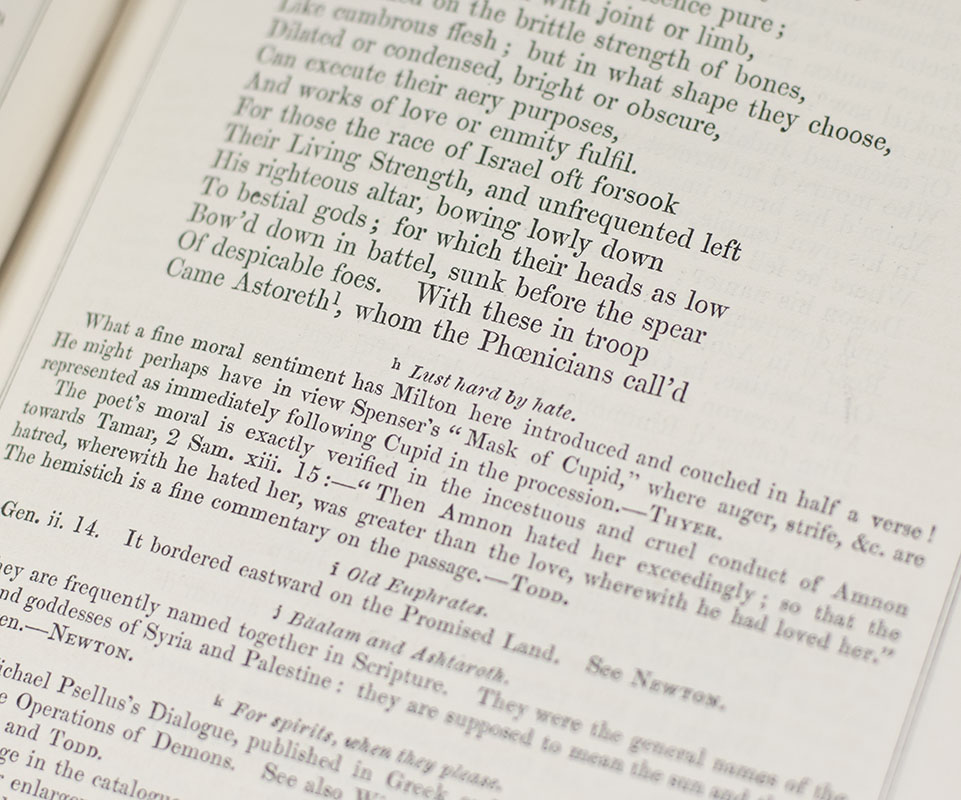 pure;
with joint or limb,
on the brittle strength of bones,
Like cumbrous flesh; but in what shape they choose,
Dilated or condensed, bright or obscure,
Can execute their aery purposes,
And works of love or enmity fulfil.
For those the race of Israel oft forsook
Their Living Strength, and unfrequented left
His righteous altar, bowing lowly down
To bestial gods; for which their heads as low
Bow'd down in battel, sunk before the spear
Of despicable foes. With these in troop
Came Astoreth¹, whom the Phœnicians call'd
h Lust hard by hate.
What a fine moral sentiment has Milton here introduced and couched in half a verse!
He might perhaps have in view Spenser's "Mask of Cupid," where anger, strife, &c. are
represented as immediately following Cupid in the procession.—THYER.
The poet's moral is exactly verified in the incestuous and cruel conduct of Amnon
towards Tamar, 2 Sam. xiii. 15:—"Then Amnon hated her exceedingly; so that the
hatred, wherewith he hated her, was greater than the love, wherewith he had loved her."
The hemistich is a fine commentary on the passage.—TODD.
i Old Euphrates.
Gen. ii. 14. It bordered eastward on the Promised Land. See NEWTON.
j Bäalam and Ashtaroth.
are frequently named together in Scripture. They were the general names of the
goddesses of Syria and Palestine: they are supposed to mean the sun and the
—NEWTON.
k For spirits, when they please.
Psellus's Dialogue, published in Greek
Operations of Demons. See also
and TODD.
in the catalogue